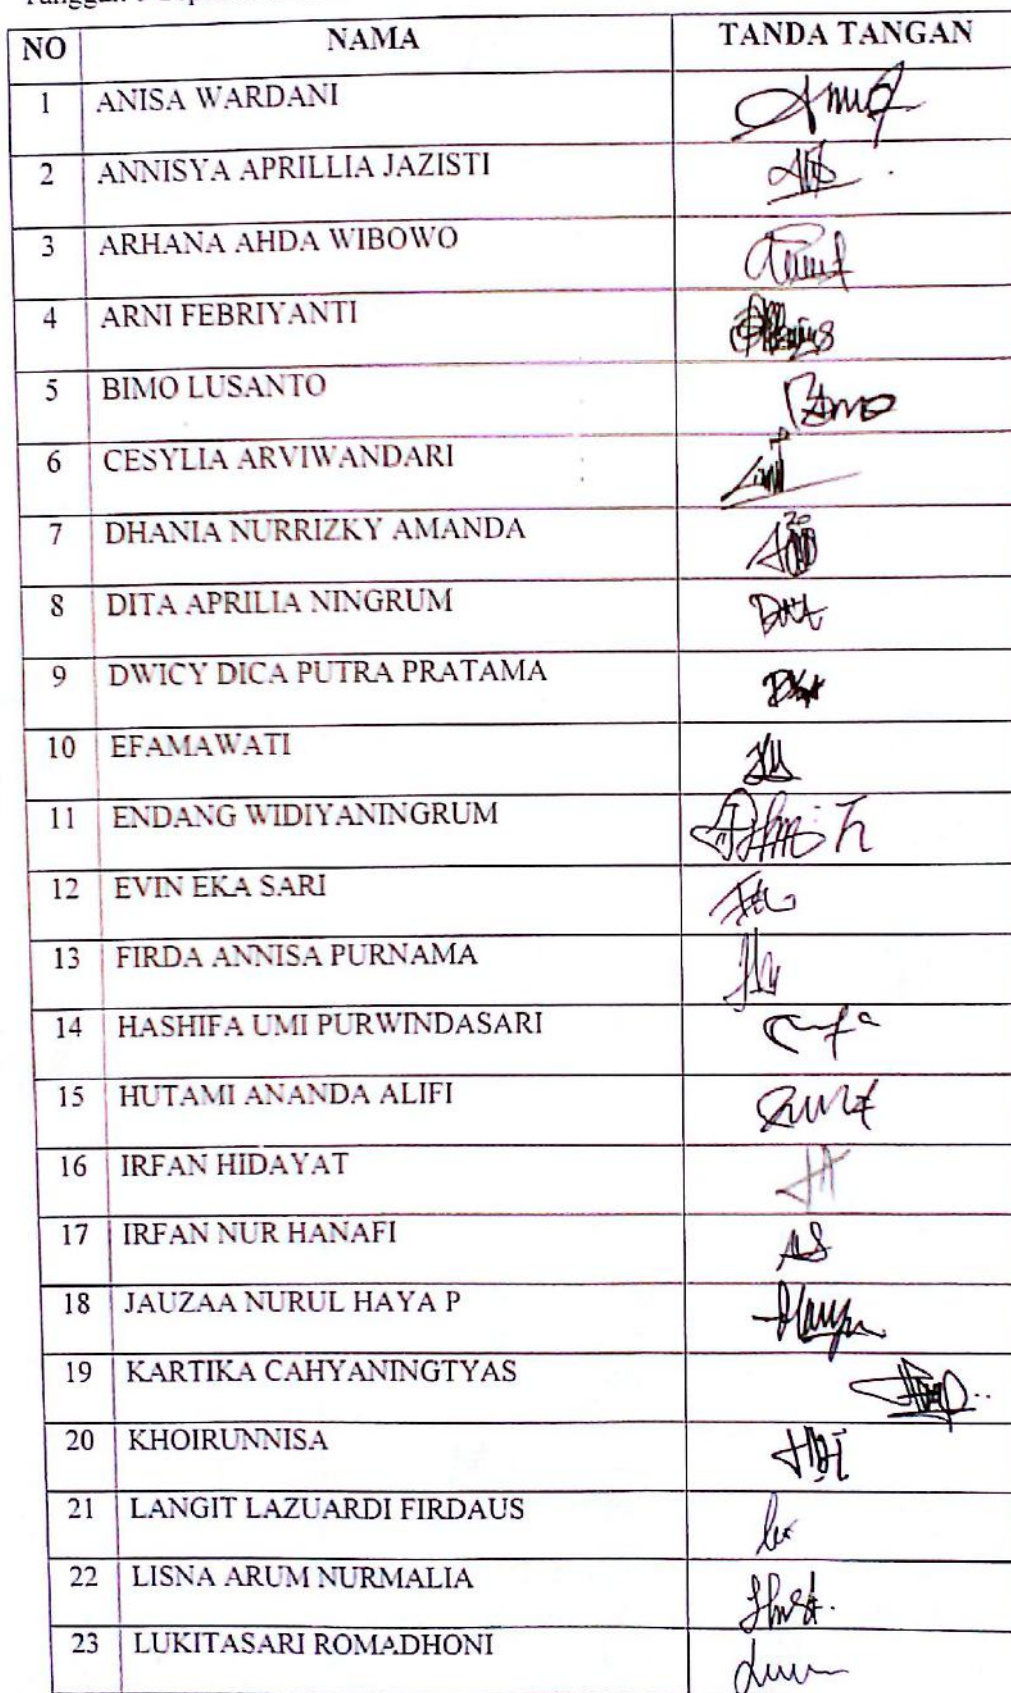 NO NAMA TANDA TANGAN
1 ANISA WARDANI
2 ANNISYA APRILLIA JAZISTI
3 ARHANA AHDA WIBOWO
4 ARNI FEBRIYANTI
5 BIMO LUSANTO
6 CESYLIA ARVIWANDARI
7 DHANIA NURRIZKY AMANDA
8 DITA APRILIA NINGRUM
9 DWICY DICA PUTRA PRATAMA
10 EFAMAWATI
11 ENDANG WIDIYANINGRUM
12 EVIN EKA SARI
13 FIRDA ANNISA PURNAMA
14 HASHIFA UMI PURWINDASARI
15 HUTAMI ANANDA ALIFI
16 IRFAN HIDAYAT
17 IRFAN NUR HANAFI
18 JAUZAA NURUL HAYA P
19 KARTIKA CAHYANINGTYAS
20 KHOIRUNNISA
21 LANGIT LAZUARDI FIRDAUS
22 LISNA ARUM NURMALIA
23 LUKITASARI ROMADHONI